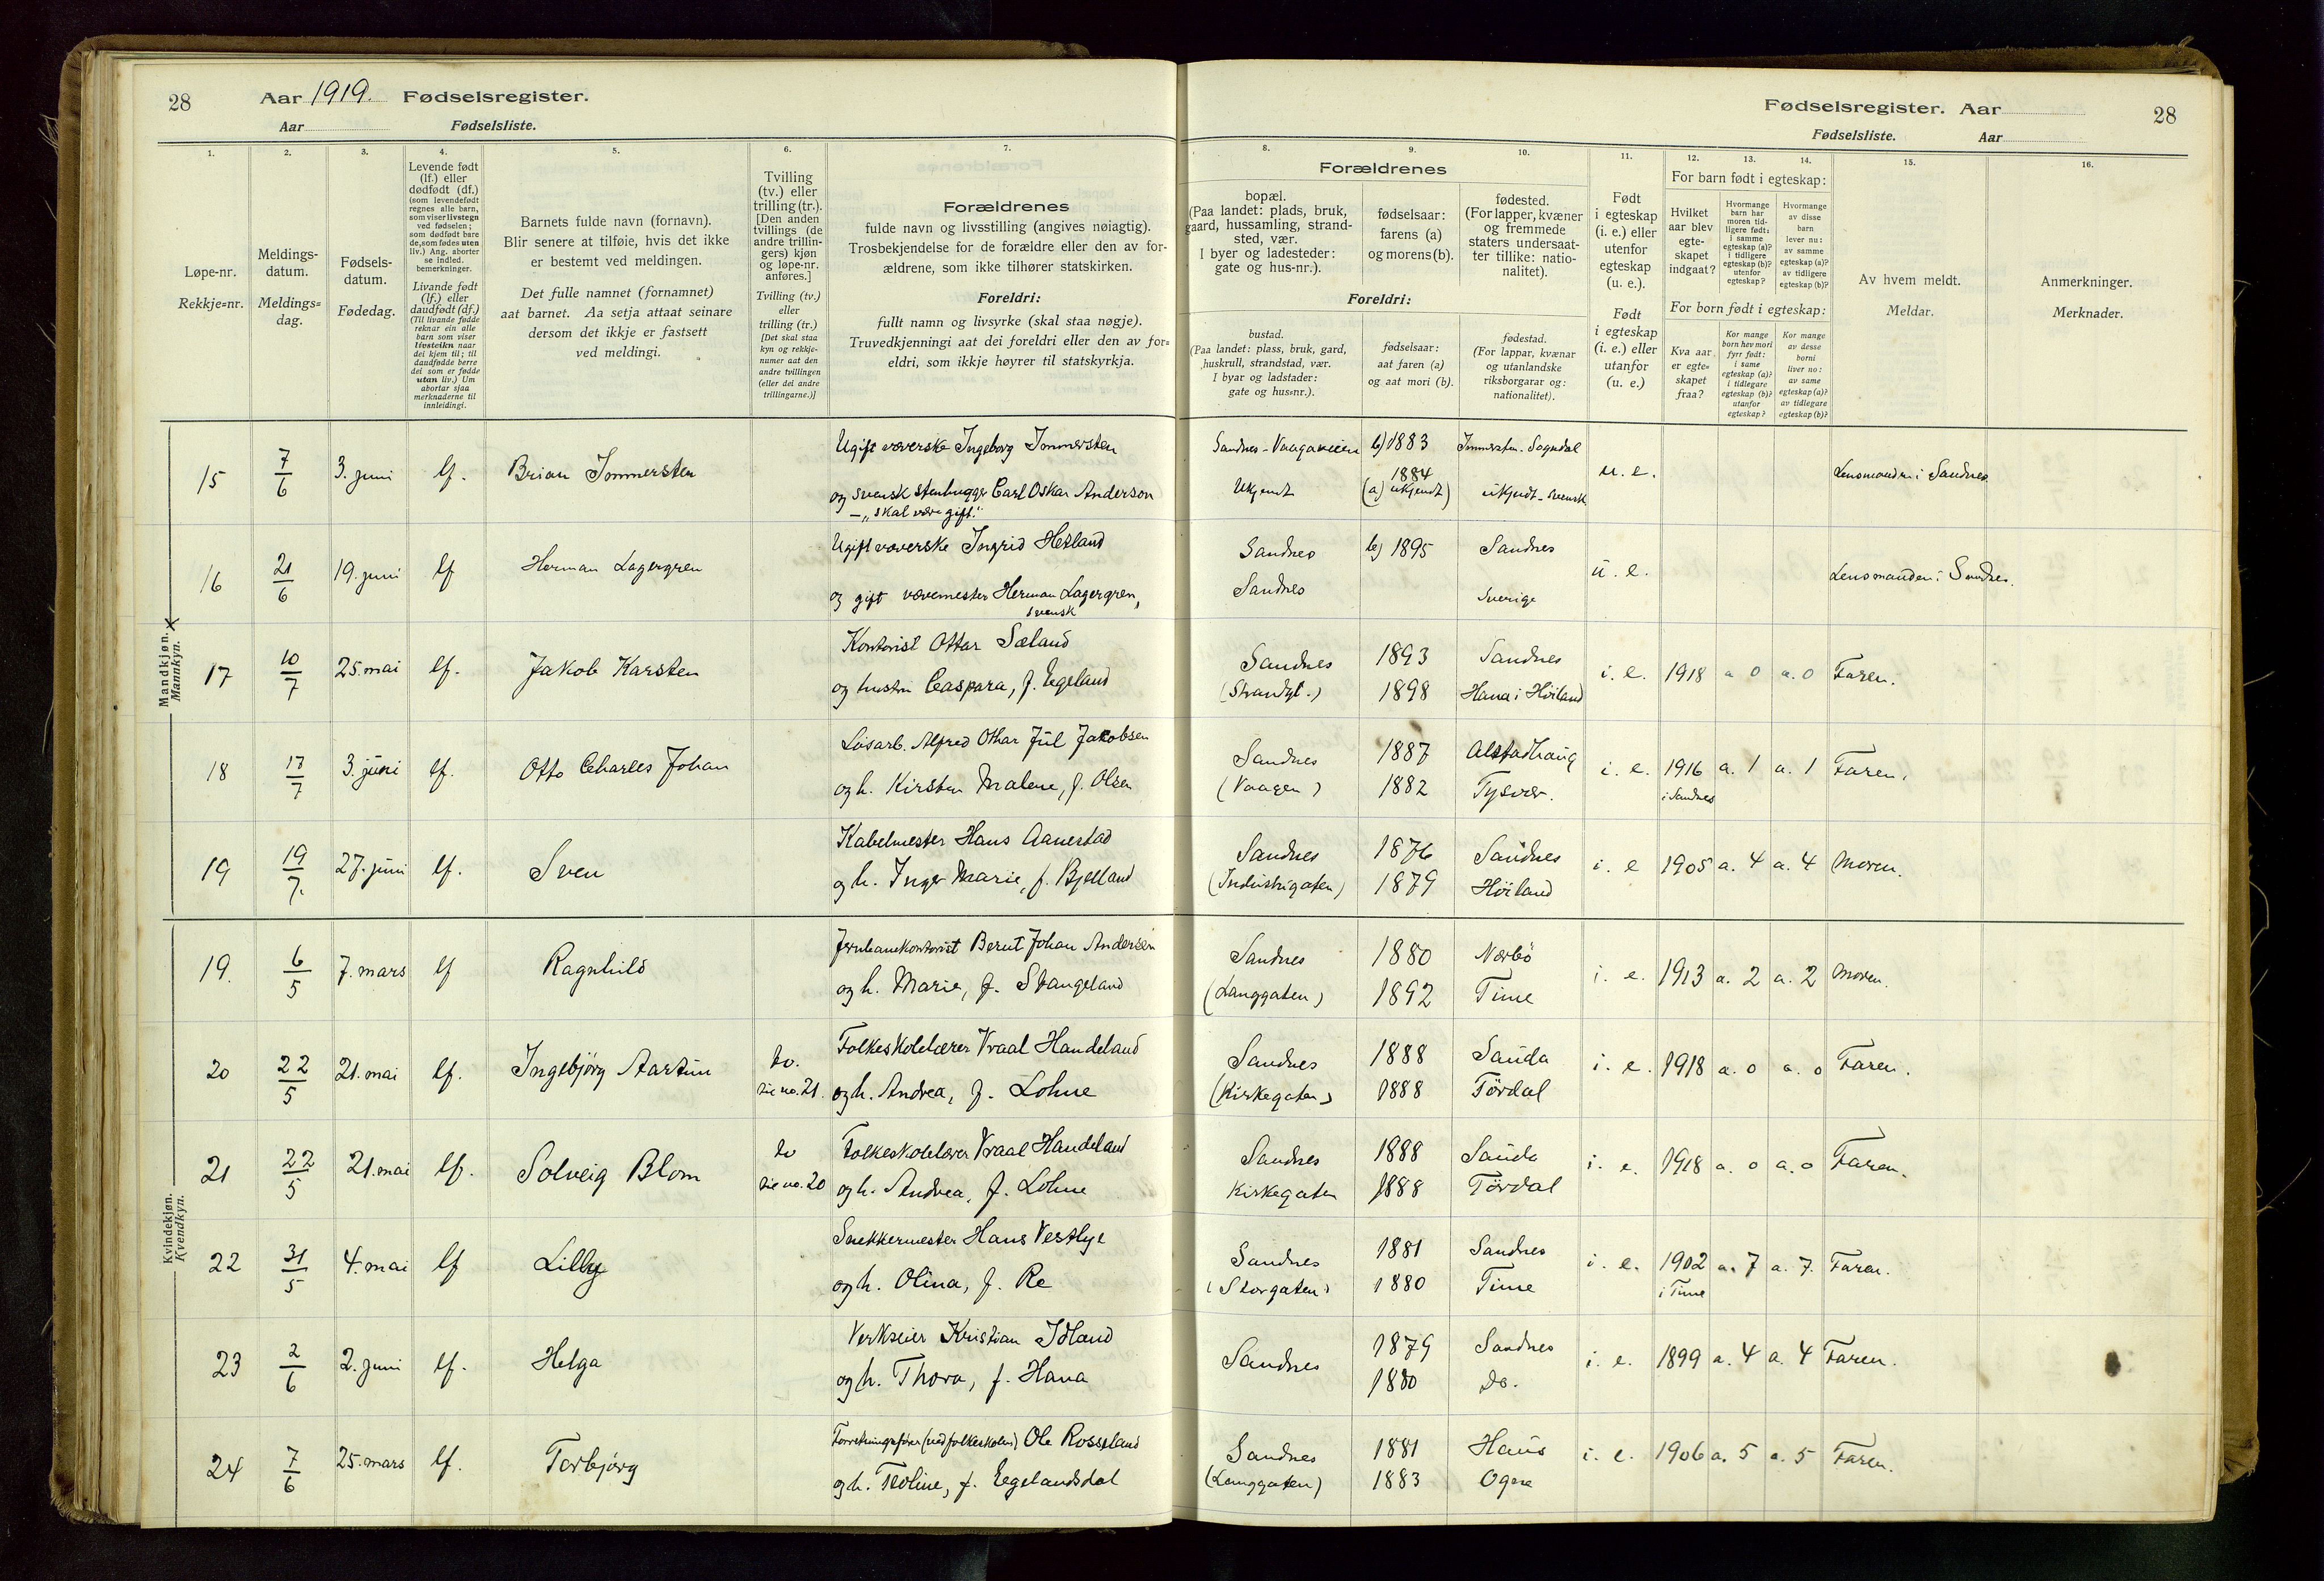 28
Aar 1919. Fødselsregister.
Aar Fødselsliste.
Fødselsregister. Aar
28
Fødselsliste. Aar
1. 2. 3. 4. 5. 6. 7. 8. 9. 10. 11. 12. 13. 14. 15. 16.
Løpe-nr.
Rekkje=nr.
Meldings-
datum.
Meldings=
dag.
Fødsels-
datum.
Fødedag.
Levende født
(lf.) eller
dødfødt (df.)
(som levendefødt
regnes alle barn,
som viser livstegn
ved fødselen;
som dødfødt bare
de, som fødes uten
liv.) Ang. aborter
se indled.
bemerkninger.
Livande født
(lf.) eller
daudfødt (df.)
(Til livande fødde
reknar ein alle
barn som viser
livsteikn naar
dei kjem til; til
daudfødde berre
dei som er fødde
utan liv.) Um
abortar sjaa
merknaderne til
innleidingi.
Barnets fulde navn (fornavn).
Blir senere at tilføie, hvis det ikke
er bestemt ved meldingen.
Det fulle namnet (fornamnet)
aat barnet. Aa setja attaat seinare
dersom det ikkje er fastsett
ved meldingi.
Tvilling
(tv.) eller
trilling (tr.).
[Den anden
tvillings (de
andre trillin-
gers) kjøn
og løpe-nr.
anføres.]
Tvilling (tv.)
eller
trilling (tr.)
[Det skal staa
kyn og rekkje-
numer aat den
andre tvillingen
(eller dei andre
trillingarne.)]
Forældrenes
fulde navn og livsstilling (angives nøiagtig).
Trosbekjendelse for de forældre eller den av for-
ældrene, som ikke tilhører statskirken.
Foreldri:
fullt namn og livsyrke (skal staa nøgje).
Truvedkjenningi aat dei foreldri eller den av for=
eldri, som ikkje høyrer til statskyrkja.
Forældrenes
bopæl.
(Paa landet: plads, bruk,
gaard, hussamling, strand-
sted, vær.
I byer og ladesteder:
gate og hus-nr.).
fødselsaar:
farens (a)
og morens (b).
fødested.
(For lapper, kvæner
og fremmede
staters undersaat-
ter tillike: natio-
nalitet).
Foreldri:
bustad.
(Paa landet: plass, bruk, gard,
huskrull, strandstad, vær.
I byar og ladstader:
gate og hus=nr.).
fødselsaar:
aat faren (a)
og aat mori (b).
fødestad.
(For lappar, kvænar
og utanlandske
riksborgarar og:
nationalitet).
Født
i egteskap
(i. e.) eller
utenfor
egteskap
(u. e.).
Født
i egteskap
(i. e.) eller
utanfor
egteskap
(u. e.)
For barn født i egteskap:
Hvilket
aar blev
egte-
skapet
indgaat?
Hvormange
barn har
moren tid-
ligere født:
i samme
egteskap (a)?
i tidligere
egteskap (b)?
utenfor
egteskap?
Hvormange
av disse
barn
lever nu:
av samme
egteskap (a)?
av tidligere
egteskap (b)?
For born født i egteskap:
Kva aar
er egte=
skapet
fraa?
Kor mange
born hev mori
fyrr født:
i same
egteskap (a)?
i tidlegare
egteskap (b)?
utanfor
egteskap?
Kor mange
av desse
borni
liver no:
av same
egteskap (a)?
av tidlegare
egteskap (b)?
Av hvem meldt.
Meldar.
Anmerkninger.
Merknader.
Mandkjøn.
Mannkyn.
15 7/6 3. juni lf. Brian Immersten
Ugift væverske Ingeborg Immersten
og svensk stenhugger Carl Oskar Anderson
— „skal være gift."
Sandnes - Vaagaveien b) 1883 Immersten. Sogndal
Ukjendt 1884 (a) ukjendt) ukjendt - svensk
u. e. Lensmanden i Sandnes
16 21/6 19. juni lf Herman Lagergren
Ugift væverske Ingrid Hetland
og gift vævemester Herman Lagergren,
svensk
Sandnes b) 1895 Sandnes
Sandnes Sverige
u. e. Lensmanden i Sandnes.
17 10/7 25. mai lf. Jakob Karsten
Kontorist Ottar Sæland
og hustru Caspara, f. Egeland
Sandnes 1893 Sandnes
(Strandgt.) 1898 Hana i Høiland
i. e. 1918 a 0 a. 0 Faren.
18 17/7 3. juni lf. Otto Charles Johan
Løsarb. Alfred Othar Jul Jakobsen
og h. Kirsten Malene, f. Olsen
Sandnes 1887 Alstadhaug
(Vaagen) 1882 Tysvær.
i. e. 1916 a. 1 a. 1 Faren.
i Sandnes
19 19/7. 27. juni lf. Sven
Kabelmester Hans Aanestad
og h. Inger Marie, f. Bjelland
Sandnes 1876 Sandnes
(Industrigaten) 1879 Høiland
i. e 1905 a. 4 a. 4 Moren.
Kvindekjøn.
Kvendkyn.
19. 6/5 7. mars lf Ragnhild
Jernbanekontorist Berut Johan Andersen
og h. Marie, f. Stangeland
Sandnes 1880 Nærbø
(Langgaten) 1892 Time
i. e. 1913 a. 2 a. 2 Moren.
20 22/5 21. mai lf. Ingebjørg Aartun tv.
sie no. 21.
Folkeskolelærer Vraal Handeland
og h. Andrea, f. Lohne
Sandnes 1888 Sauda
(Kirkegaten) 1888 Tördal
i. e. 1918 a. 0 a. 0 Faren.
21 22/5 21. mai lf. Solveig Blom tv
sie no. 20
Folkeskolelærer Vraal Handeland
og h. Andrea, f. Lohne
Sandnes 1888 Sauda
Kirkegaten 1888 Tördal
i. e. 1918 a. 0 a. 0 Faren.
22 31/5 4. mai lf Lilly
Snekkermester Hans Vestlye
og h. Olina, f. Re
Sandnes 1881 Sandnes
(Storgaten) 1880 Time
i. e. 1902 a. 7 a. 7. Faren.
i Time
23 2/6 2. juni lf. Helga
Verkseier Kristian Idland
og h. Thora, f. Hana
Sandnes 1879 Sandnes
1880 Do.
i. e. 1899 a. 4 a. 4 Faren.
24 7/6 25. mars lf. Torbjørg
Forretningsfører (ved folkeskolen) Ole Rosseland
og h. Teoline, f. Eegelandsdal
Sandnes 1881 Haus
(Langgaten) 1883 Ogna
i. e. 1906 a. 5 a. 5 Faren.